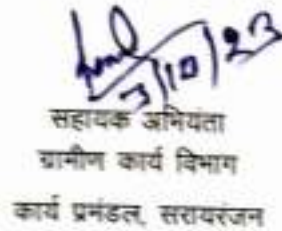 3/10/23
सहायक अभियंता
ग्रामीण कार्य विभाग
कार्य प्रमंडल, सरायरंजन